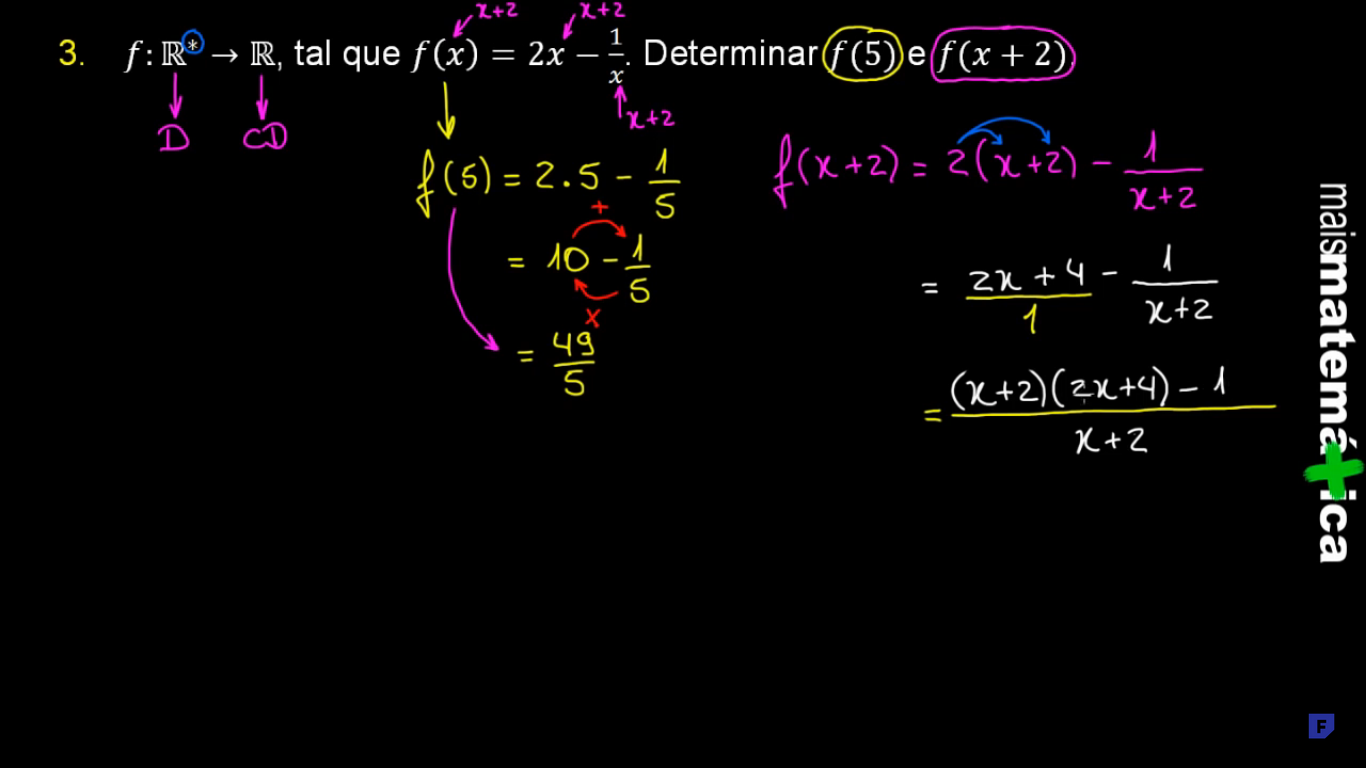 x+2 x+2
3. f: ℝ* → ℝ, tal que f(x) = 2x − 1/x. Determinar f(5) e f(x + 2).
x+2
D CD
f(5) = 2.5 − 1/5
+
= 10 − 1/5
x
= 49/5
f(x+2) = 2(x+2) − 1/(x+2)
= (2x+4)/1 − 1/(x+2)
= ((x+2)(2x+4) − 1)/(x+2)
maismatemá+ica
F